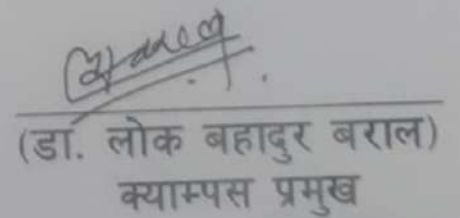 (डा. लोक बहादुर बराल)
क्याम्पस प्रमुख